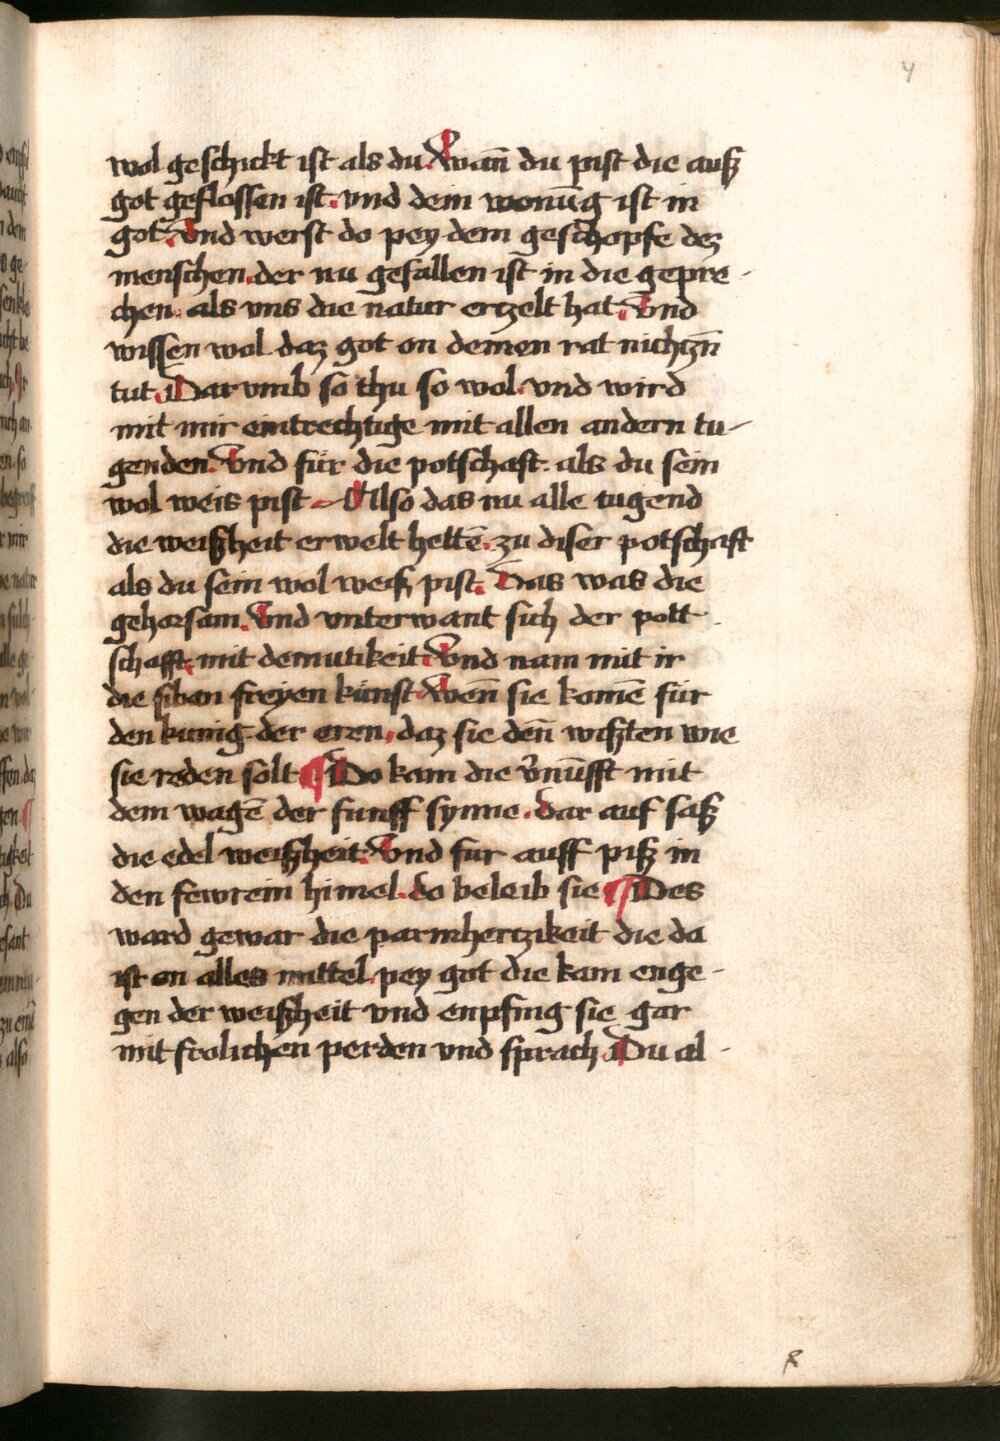 4
wol geschickt ist als du. Wan̄ du pist die auß
got geflossen ist. vnd dein wonūg ist in
got. Vnd werst do pey dem geschopfe dez
menschen. der nu gefallen ist in die gepre-
chen. als vns die natur erzelt hat. Vnd
wissen wol daz got on deinen rat nichczn̄
tut. Dar vmb so thu so wol. vnd wird
mit mir eintrechtige mit allen andern tu-
genden. Vnd für die potschaft. als du sein
wol weis pist. Also das nu alle tugend
die weißheit erwelt hettē. zu diser potschaft
als du sein wol weiß pist. Das was die
gehorsam. Vnd vnterwant sich der pott
schafft. mit demutikeit. Vnd nam mit ir
die siben freyen künst. Wen̄ sie komē für
den kunig der eren, daz sie den̄ wißten wie
sie reden solt ¶ Do kam die v̄nūfft mit
dem wagē der funff synne. dar auf saß
die edel weißheit. Vnd fur auff piß in
den fewrein himel. do beleib sie ¶ Des
ward gewar die parmhertzikeit die da
ist on alles mittel pey got die kam enge-
gen der weißheit vnd enpfing sie gar
mit frolichen perden vnd sprach. Du al-